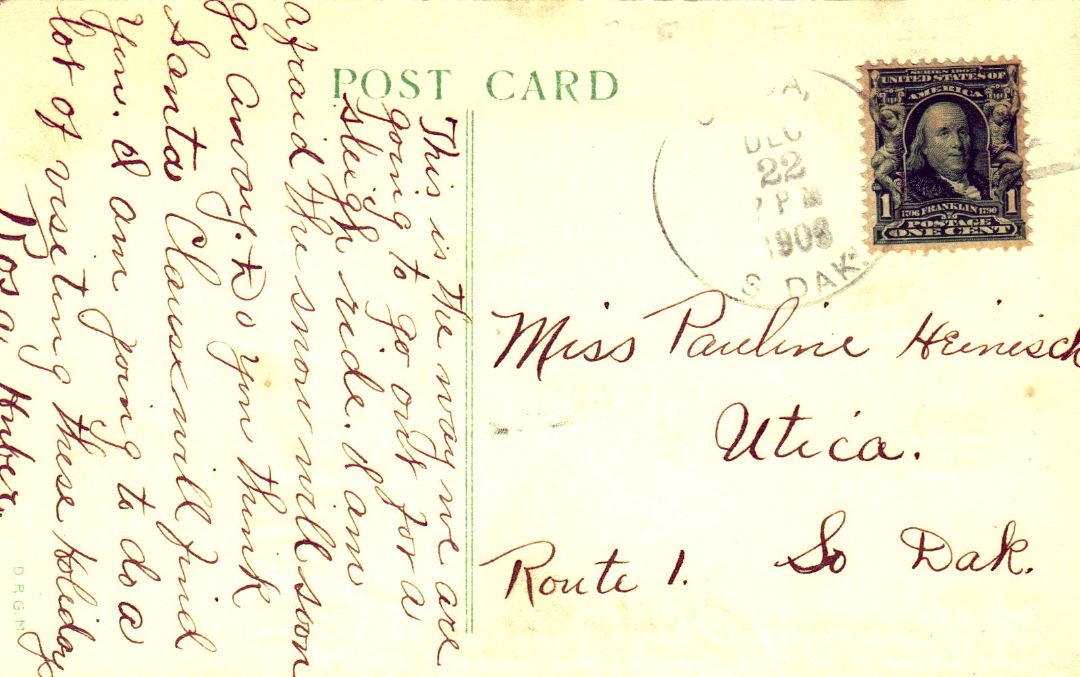 POST CARD
This is the way we are
going to go out for a
sleigh ride. I am
afraid the snow will soon
go away. Do you think
Santa Clause will find
you. I am going to do a
lot of viseting these holiday
Rosa Huber.
D.R.G.M.
A,
DEC
22
7 PM
1908
S. DAK.
SERIES 1902
UNITED STATES OF
AMERICA
1 1
1706 FRANKLIN 1790
POSTAGE
ONE CENT
Miss Pauline Heinisch
Utica.
Route 1. So Dak.